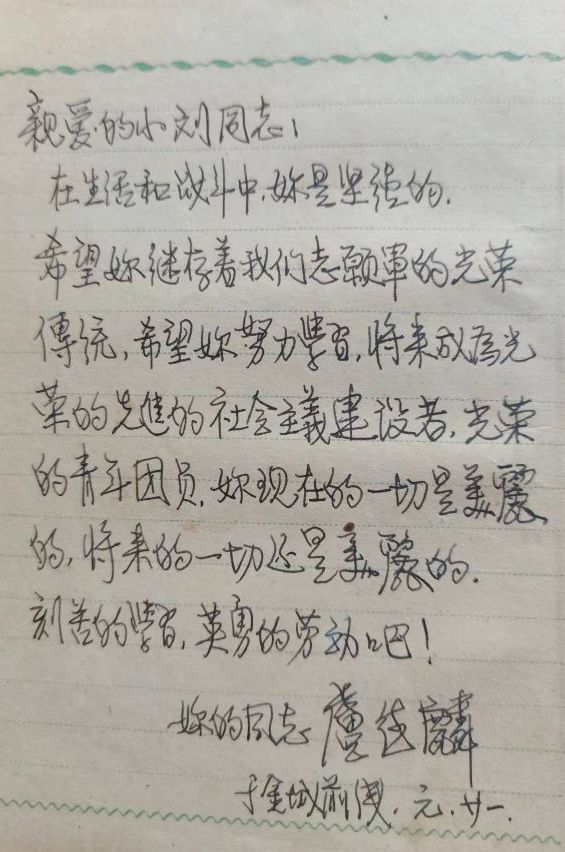 親爱的小刘同志！
在生活和战斗中，妳是坚强的.
希望妳继存着我们志願軍的光荣
傳统，希望妳努力學習，将来成為光
荣的先進的社会主義建设者，光荣
的青年团员，妳现在的一切是美麗
的，将来的一切还是美麗的.
刻苦的學習，英勇的劳动吧！
妳的同志
于金城前线．元．廿一．